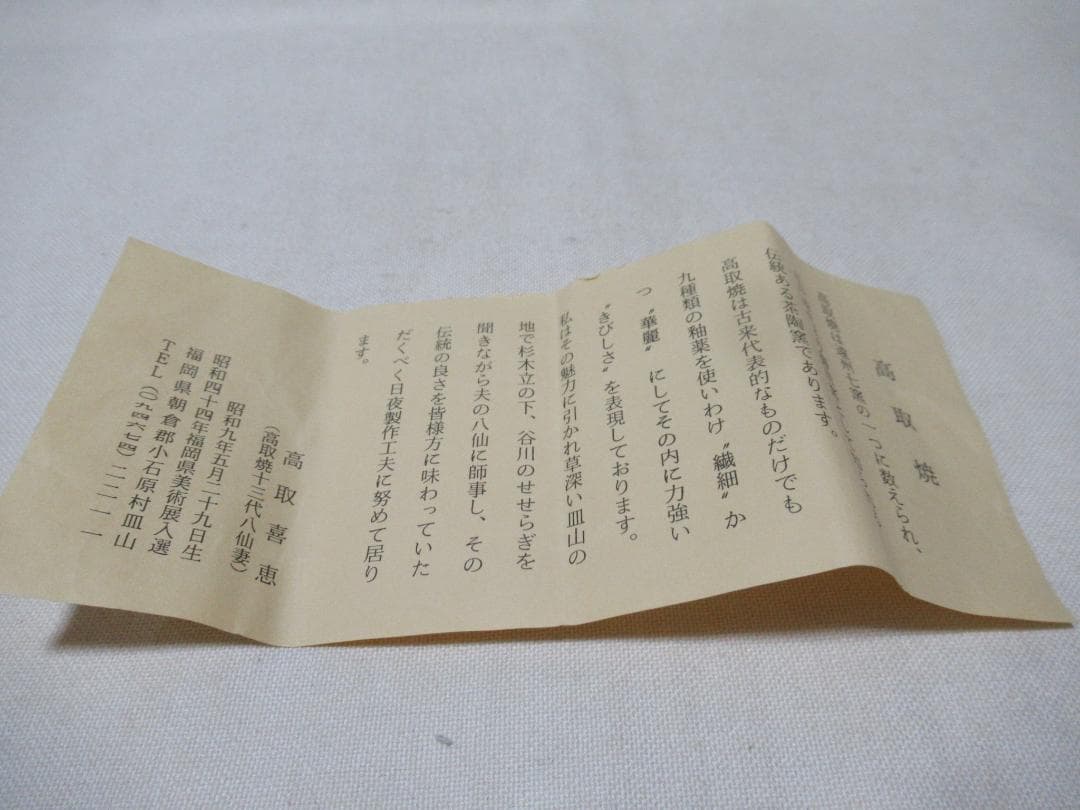 高取焼
高取焼は遠州七窯の一つに数えられ、
伝統ある茶陶窯であります。
高取焼は古来代表的なものだけでも
九種類の釉薬を使いわけ〝繊細〟か
つ〝華麗〟にしてその内に力強い
〝きびしさ〟を表現しております。
私はその魅力に引かれ草深い皿山の
地で杉木立の下、谷川のせせらぎを
聞きながら夫の八仙に師事し、その
伝統の良さを皆様方に味わっていた
だくべく日夜製作工夫に努めて居り
ます。
高取喜恵
(高取焼十三代八仙妻)
昭和九年五月二十九日生
昭和四十四年福岡県美術展入選
福岡県朝倉郡小石原村皿山
TEL(〇九四六七四)二二一一